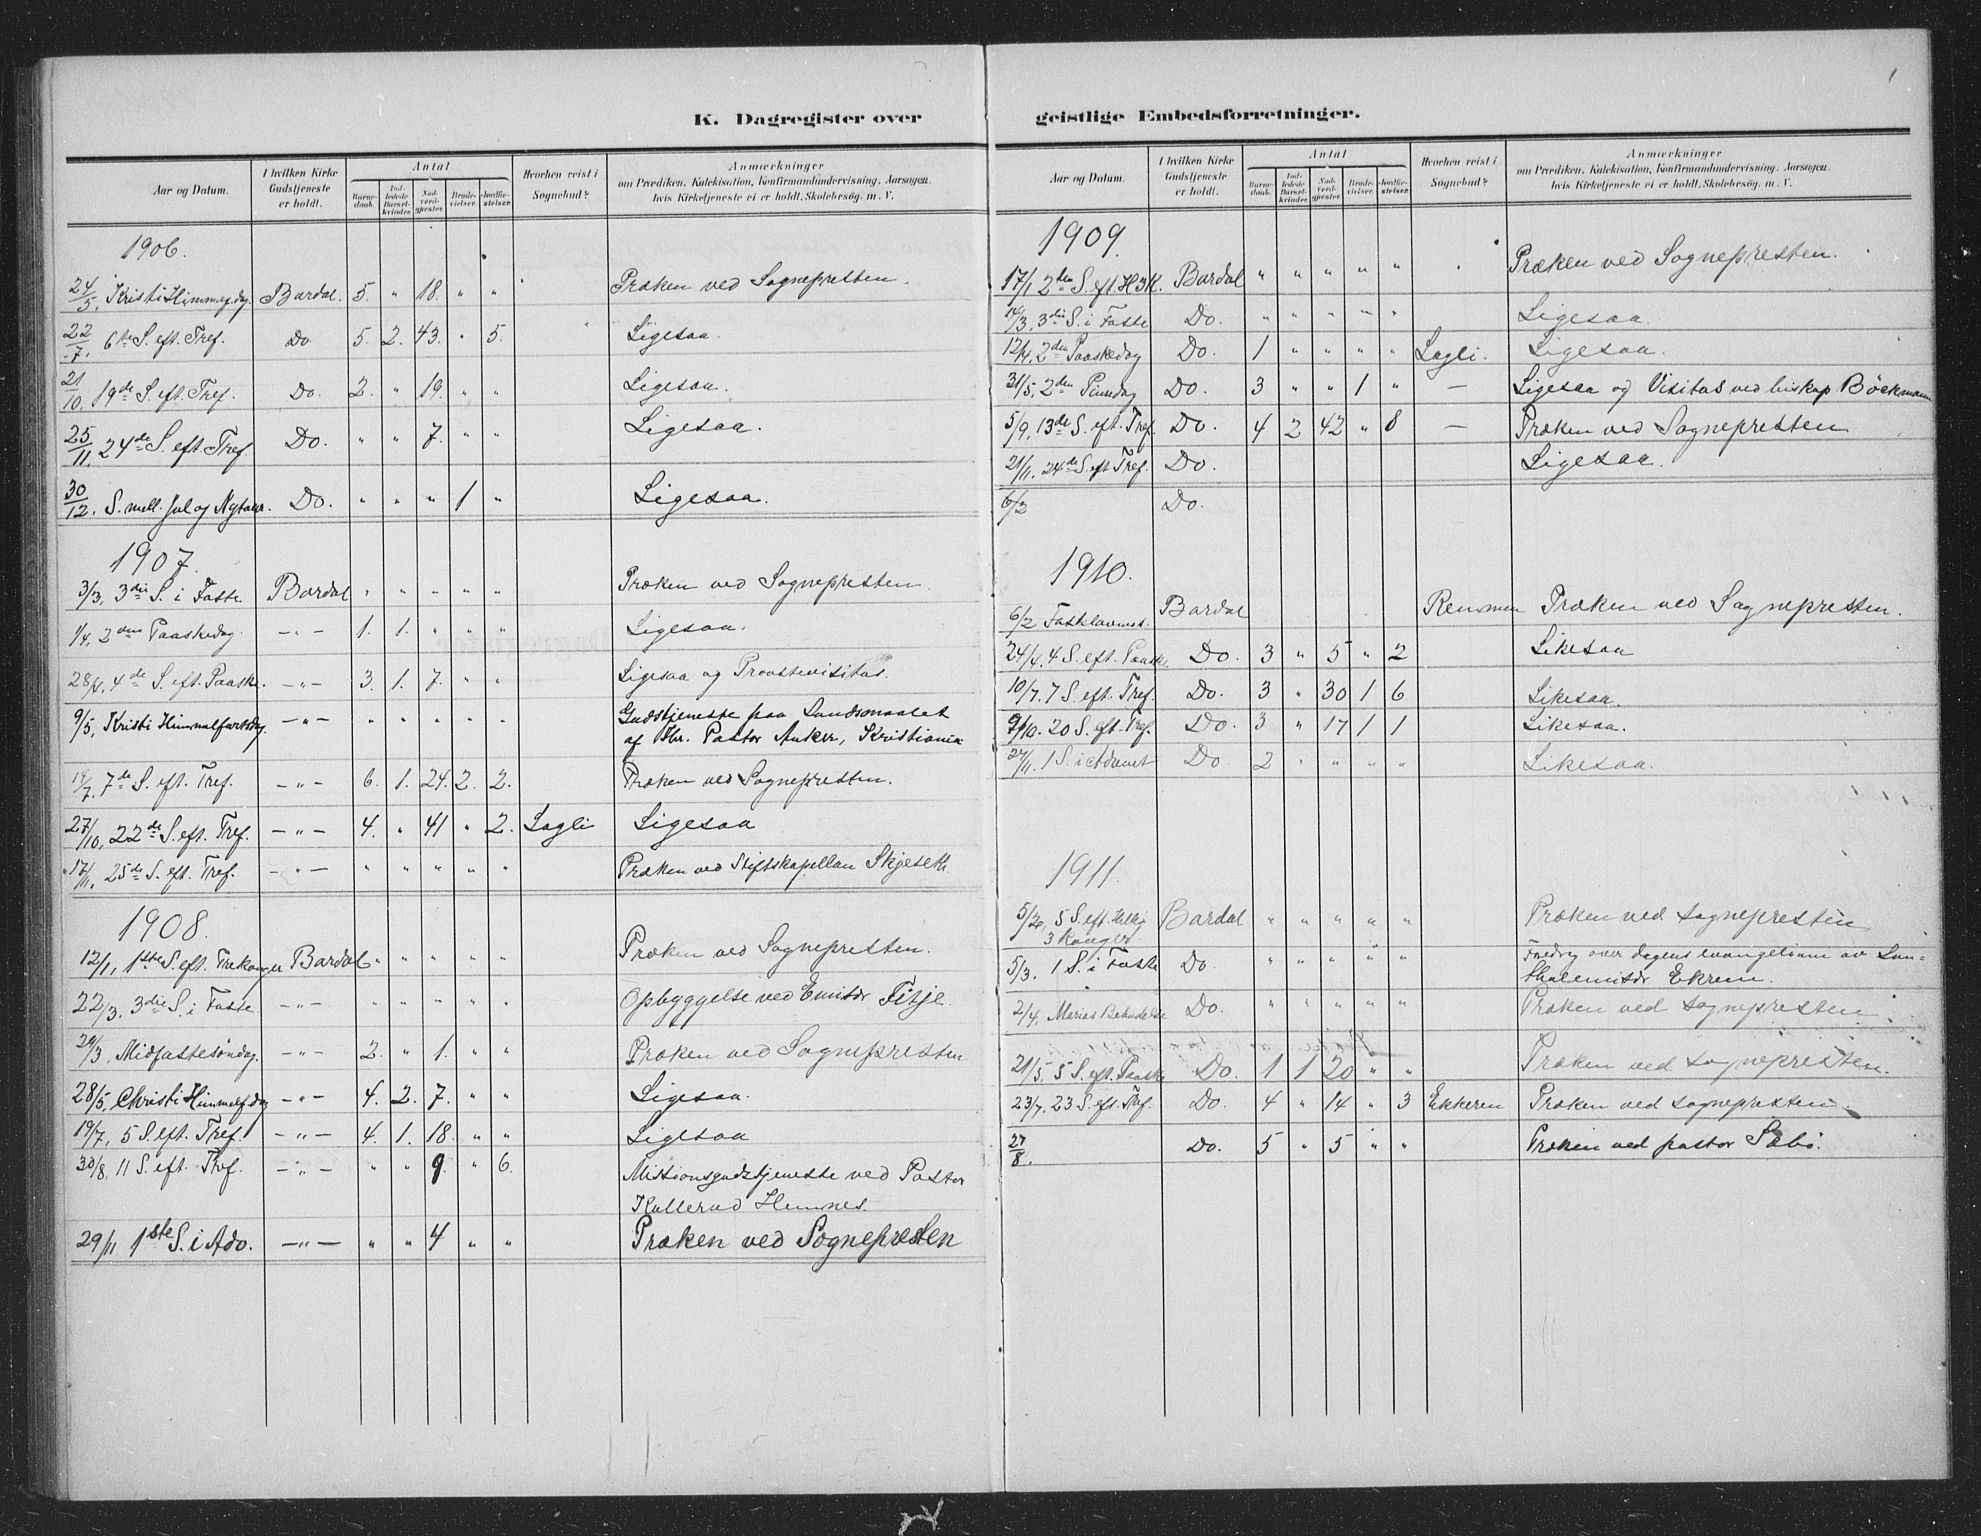 K. Dagregister over
Aar og Datum. I hvilken Kirke Gudstjeneste er holdt. Antal Hvorhen reist i Sognebud? Anmærkninger
Barnedaab. Indledede Barselkvinder. Nadverdgjester. Brudevielser. Jordfæstelser. om Prædiken, Katekisation, Konfirmandundervisning, Aarsagen hvis Kirketjeneste ei er holdt, Skolebesøg, m. V.
1906.
24/5. Kristi Himmelf.dag Bardal. 5. " 18. " " Præken ved Sognepresten.
22/7. 6te S. eft. Tref. Do 5. 2. 43. " 5. Ligesaa.
21/10. 19de S. eft. Tref. Do. 2. " 19. " " Ligesaa.
25/11. 24de S. eft. Tref. Do. " " 7. " " Ligesaa.
30/12. S. mell. Jul og Nytaar. Do. " " " 1 " Ligesaa.
1907.
3/3. 3die S. i Faste Bardal " " " " " Præken ved Sognepresten
1/4. 2den Paaskedag. -"- 1. 1. " " " Ligesaa.
28/4. 4de S. eft. Paaske. -"- 3. 1. 7. " " Ligesaa og Provstevisitas.
9/5. Kristi Himmelfartsdag -"- " " " " " Gudstjeneste paa Landsmaalet
af Hr. Pastor Anker, Kristiania
14/7. 7de S. eft. Tref. -"- 6. 1. 24. 2. 2. Præken ved Sognepresten.
27/10. 22de S. eft. Tref. -"- 4. " 41 " 2. Lagli Ligesaa
17/11. 25de S. eft. Tref. -"- " " " " " Præken ved Stiftskapellan
1908.
12/1. 1ste S. eft. Trekonger Bardal " " " " " Præken ved Sognepresten.
22/3. 3die S. i Faste -"- " " " " " Opbyggelse ved Emisær Fitje.
29/3. Midfastesøndag. -"- 2. " 1. " " Præken ved Sognepresten
28/5. Christi Himmelf.dag -"- 4. 2. 7. " " Ligesaa.
19/7. 5 S. eft. Tref. -"- 4. 1. 18. " " Ligesaa
30/8. 11 S. eft. Tref. -"- " " 9. " 6. Missionsgudstjeneste ved Pastor
Kullerud Hemnes.
29/11 1ste S. i Adv. -"- " " 4 " " Præken ved Sognepresten
geistlige Embedsforretninger.
Aar og Datum. I hvilken Kirke Gudstjeneste er holdt. Antal Hvorhen reist i Sognebud? Anmærkninger
Barnedaab. Indledede Barselkvinder. Nadverdgjester. Brudevielser. Jordfæstelser. om Prædiken, Katekisation, Konfirmandundervisning, Aarsagen hvis Kirketjeneste ei er holdt, Skolebesøg, m. V.
1909.
17/1 2den S. eft. H3K. Bardal " " " " " " Præken ved Sognepresten.
14/3. 3die S. i Faste Do. " " " " " Ligesaa.
12/4. 2den Paaskedag Do. 1 " " " " Lagli. Ligesaa.
31/5. 2den Pinsdag Do. 3 " " 1 " - Ligesaa og Visitas ved biskop Böckmann
5/9. 13de S. eft. Tref. Do. 4 2 42 " 8 - Præken ved Sognepresten
21/11. 24de S. eft Tref. Do. Ligesaa.
6/2 Do.
1910.
6/2 Fastelavnss. Bardal Rensmen Præken ved Sognepresten.
24/4. 4 S. eft. Paaske Do. 3 " 5 " 2 Likesaa
10/7. 7 S. eft. Tref. Do. 3 " 30 1 6 Likesaa.
9/10. 20 S. eft. Tref. Do. 3 " 17 1 1 Likesaa.
27/11. 1 S. i Advent Do. 2 " " " " Likesaa.
1911.
5/2. 5 S. eft. Hellig Bardal " " " " " Præken ved sognepresten
3 Konger
5/3. 1 S. i Faste Do. " " " " " Foredrag over dagens evangelium av
Ekrem.
2/4. Marias Bebudelse Do. " " " " " Præken ved sognepresten.
21/5. 5 S. eft. Paaske Do. 1 1 20 " " Præken ved sognepresten.
23/7. 23 S. eft. Tref. Do. 4 " 14 " 3 Ekkeren Præken ved sognepresten.
27/8. Do. 5 " 5 " " Præken ved pastor Sæbø.